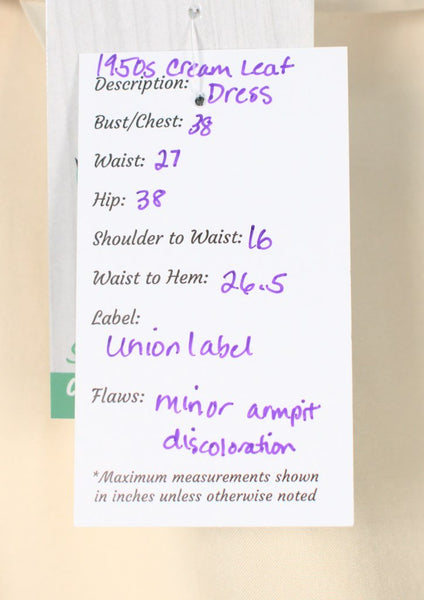 1950s Cream Leaf
Description: Dress
Bust/Chest: 38
Waist: 27
Hip: 38
Shoulder to Waist: 16
Waist to Hem: 26.5
Label:
Union label
Flaws: minor armpit
discoloration
*Maximum measurements shown
in inches unless otherwise noted